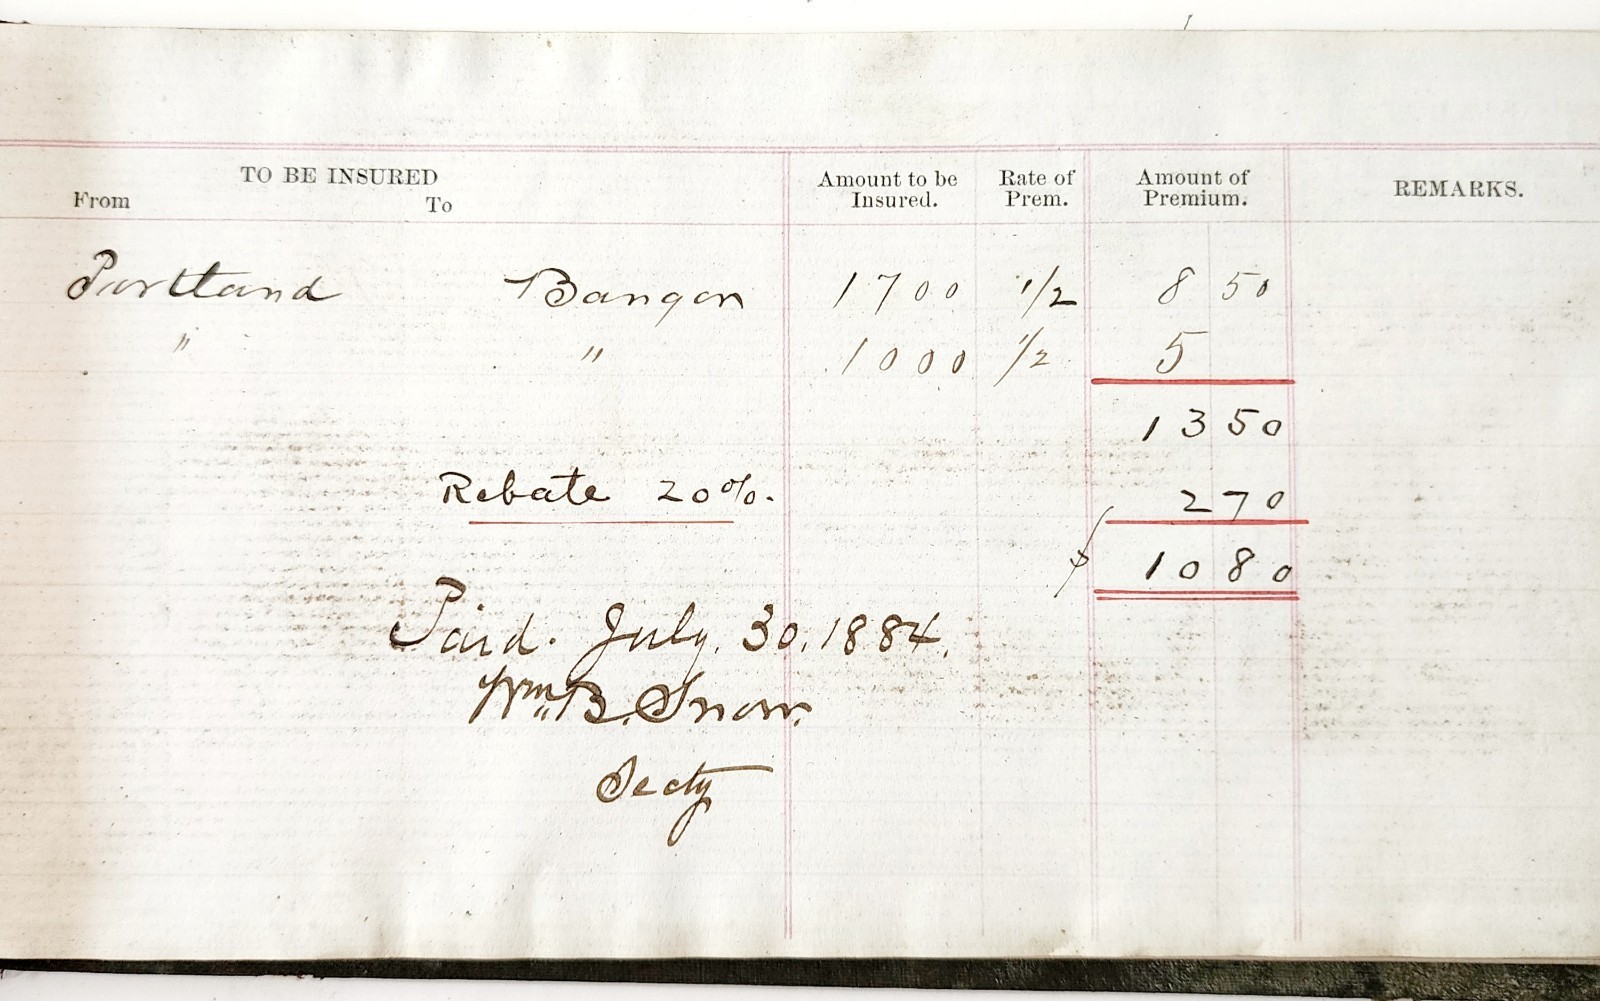 TO BE INSURED
From To Amount to be Insured. Rate of Prem. Amount of Premium. REMARKS.
Portland Bangor 1700 1/2 8 50
" " 1000 1/2 5
13 50
Rebate 20%. 2 70
$ 10 80
Paid. July. 30. 1884.
Wm. B. Snow.
Secty